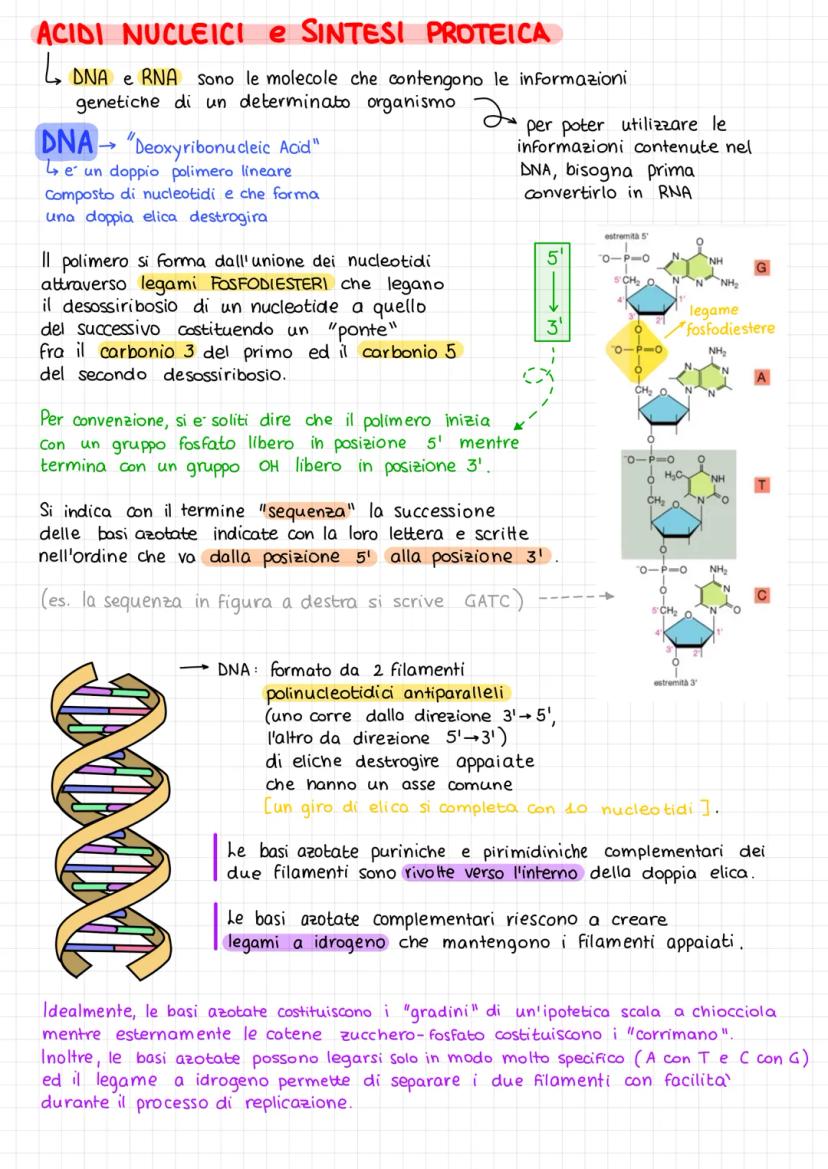 ACIDI NUCLEICI e SINTESI PROTEICA
↳ DNA e RNA sono le molecole che contengono le informazioni
genetiche di un determinato organismo
per poter utilizzare le
informazioni contenute nel
DNA, bisogna prima
convertirlo in RNA
DNA → "Deoxyribonucleic Acid"
↳ e' un doppio polimero lineare
composto di nucleotidi e che forma
una doppia elica destrogira
Il polimero si forma dall'unione dei nucleotidi
attraverso legami FOSFODIESTERI che legano
il desossiribosio di un nucleotide a quello
del successivo costituendo un "ponte"
fra il carbonio 3 del primo ed il carbonio 5
del secondo desossiribosio.
5'
3'
Per convenzione, si e' soliti dire che il polimero inizia
con un gruppo fosfato libero in posizione 5' mentre
termina con un gruppo OH libero in posizione 3'.
Si indica con il termine "sequenza" la successione
delle basi azotate indicate con la loro lettera e scritte
nell'ordine che va dalla posizione 5' alla posizione 3'.
(es. la sequenza in figura a destra si scrive GATC)
estremità 5'
O
⁻O–P=O
N
NH
G
5'CH₂
O
N
N
NH₂
4'
1'
3'
2'
legame
fosfodiestere
O
⁻O–P=O
NH₂
O
N
N
A
CH₂
O
N
N
O
⁻O–P=O
O
H₃C
NH
T
O
CH₂
O
N
O
O
⁻O–P=O
NH₂
O
N
C
5'CH₂
O
N
O
4'
1'
3'
2'
O
estremità 3'
→ DNA: formato da 2 filamenti
polinucleotidici antiparalleli
(uno corre dalla direzione 3'→5',
l'altro da direzione 5'→3')
di eliche destrogire appaiate
che hanno un asse comune
[un giro di elica si completa con 10 nucleotidi].
Le basi azotate puriniche e pirimidiniche complementari dei
due filamenti sono rivolte verso l'interno della doppia elica.
Le basi azotate complementari riescono a creare
legami a idrogeno che mantengono i filamenti appaiati.
Idealmente, le basi azotate costituiscono i "gradini" di un'ipotetica scala a chiocciola
mentre esternamente le catene zucchero-fosfato costituiscono i "corrimano".
Inoltre, le basi azotate possono legarsi solo in modo molto specifico (A con T e C con G)
ed il legame a idrogeno permette di separare i due filamenti con facilita'
durante il processo di replicazione.